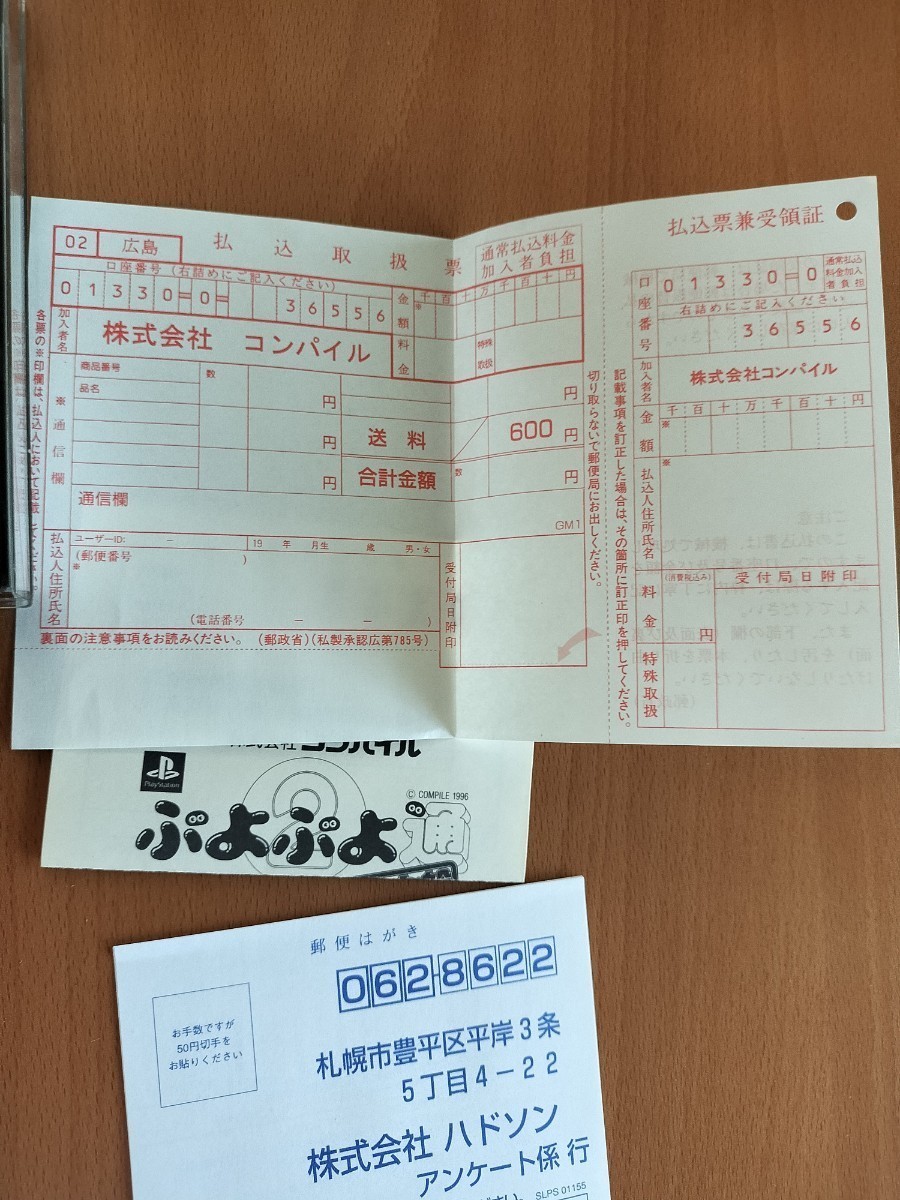 02 広島 払込取扱票 通常払込料金加入者負担
口座番号(右詰めにご記入ください)
01330=0= 36556
金額 千百十万千百十円
※
料金 特殊取扱
加入者名 株式会社 コンパイル
※通信欄
商品番号 数
品名 円
円 送料 600円
円 合計金額 数 円
通信欄
GM1
払込人住所氏名
ユーザーID: − 19 年 月生 歳 男・女
(郵便番号 )
※
(電話番号 − − )
受付局日附印
裏面の注意事項をお読みください。 (郵政省)(私製承認広第785号)
切り取らないで郵便局にお出しください。
記載事項を訂正した場合は、その箇所に訂正印を押してください。
払込票兼受領証
口座番号 01330=0 通常払込料金加入者負担
右詰めにご記入ください
36556
加入者名 株式会社コンパイル
金額 千百十万千百十円
※
払込人住所氏名 ※
料金 (消費税込み) 円
特殊取扱
受付局日附印
株式会社コンパイル
PlayStation
© COMPILE 1996
ぷよぷよ通
郵便はがき
062-8622
お手数ですが
50円切手を
お貼りください
札幌市豊平区平岸3条
5丁目4−22
株式会社 ハドソン
アンケート係 行
SLPS 01155